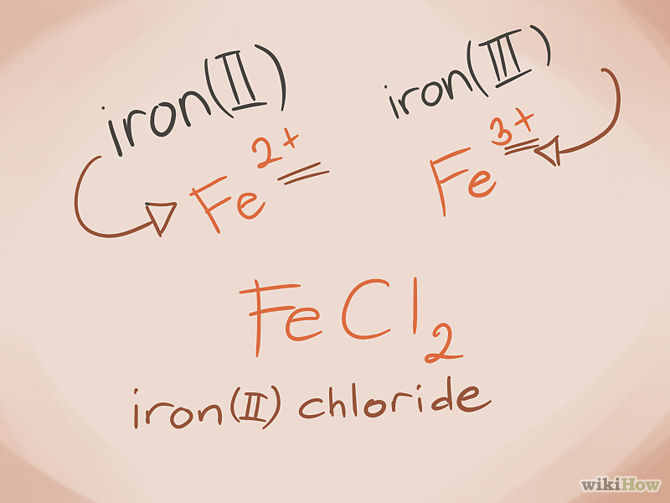 iron(II)
iron(III)
Fe²⁺
Fe³⁺
FeCl₂
iron(II) chloride
wikiHow